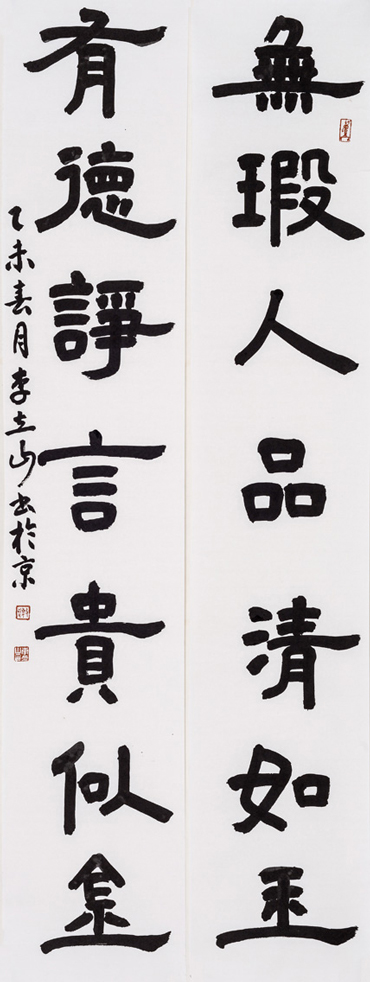 無瑕人品清如玉
有德諍言貴似金
乙未春月李立山書於京